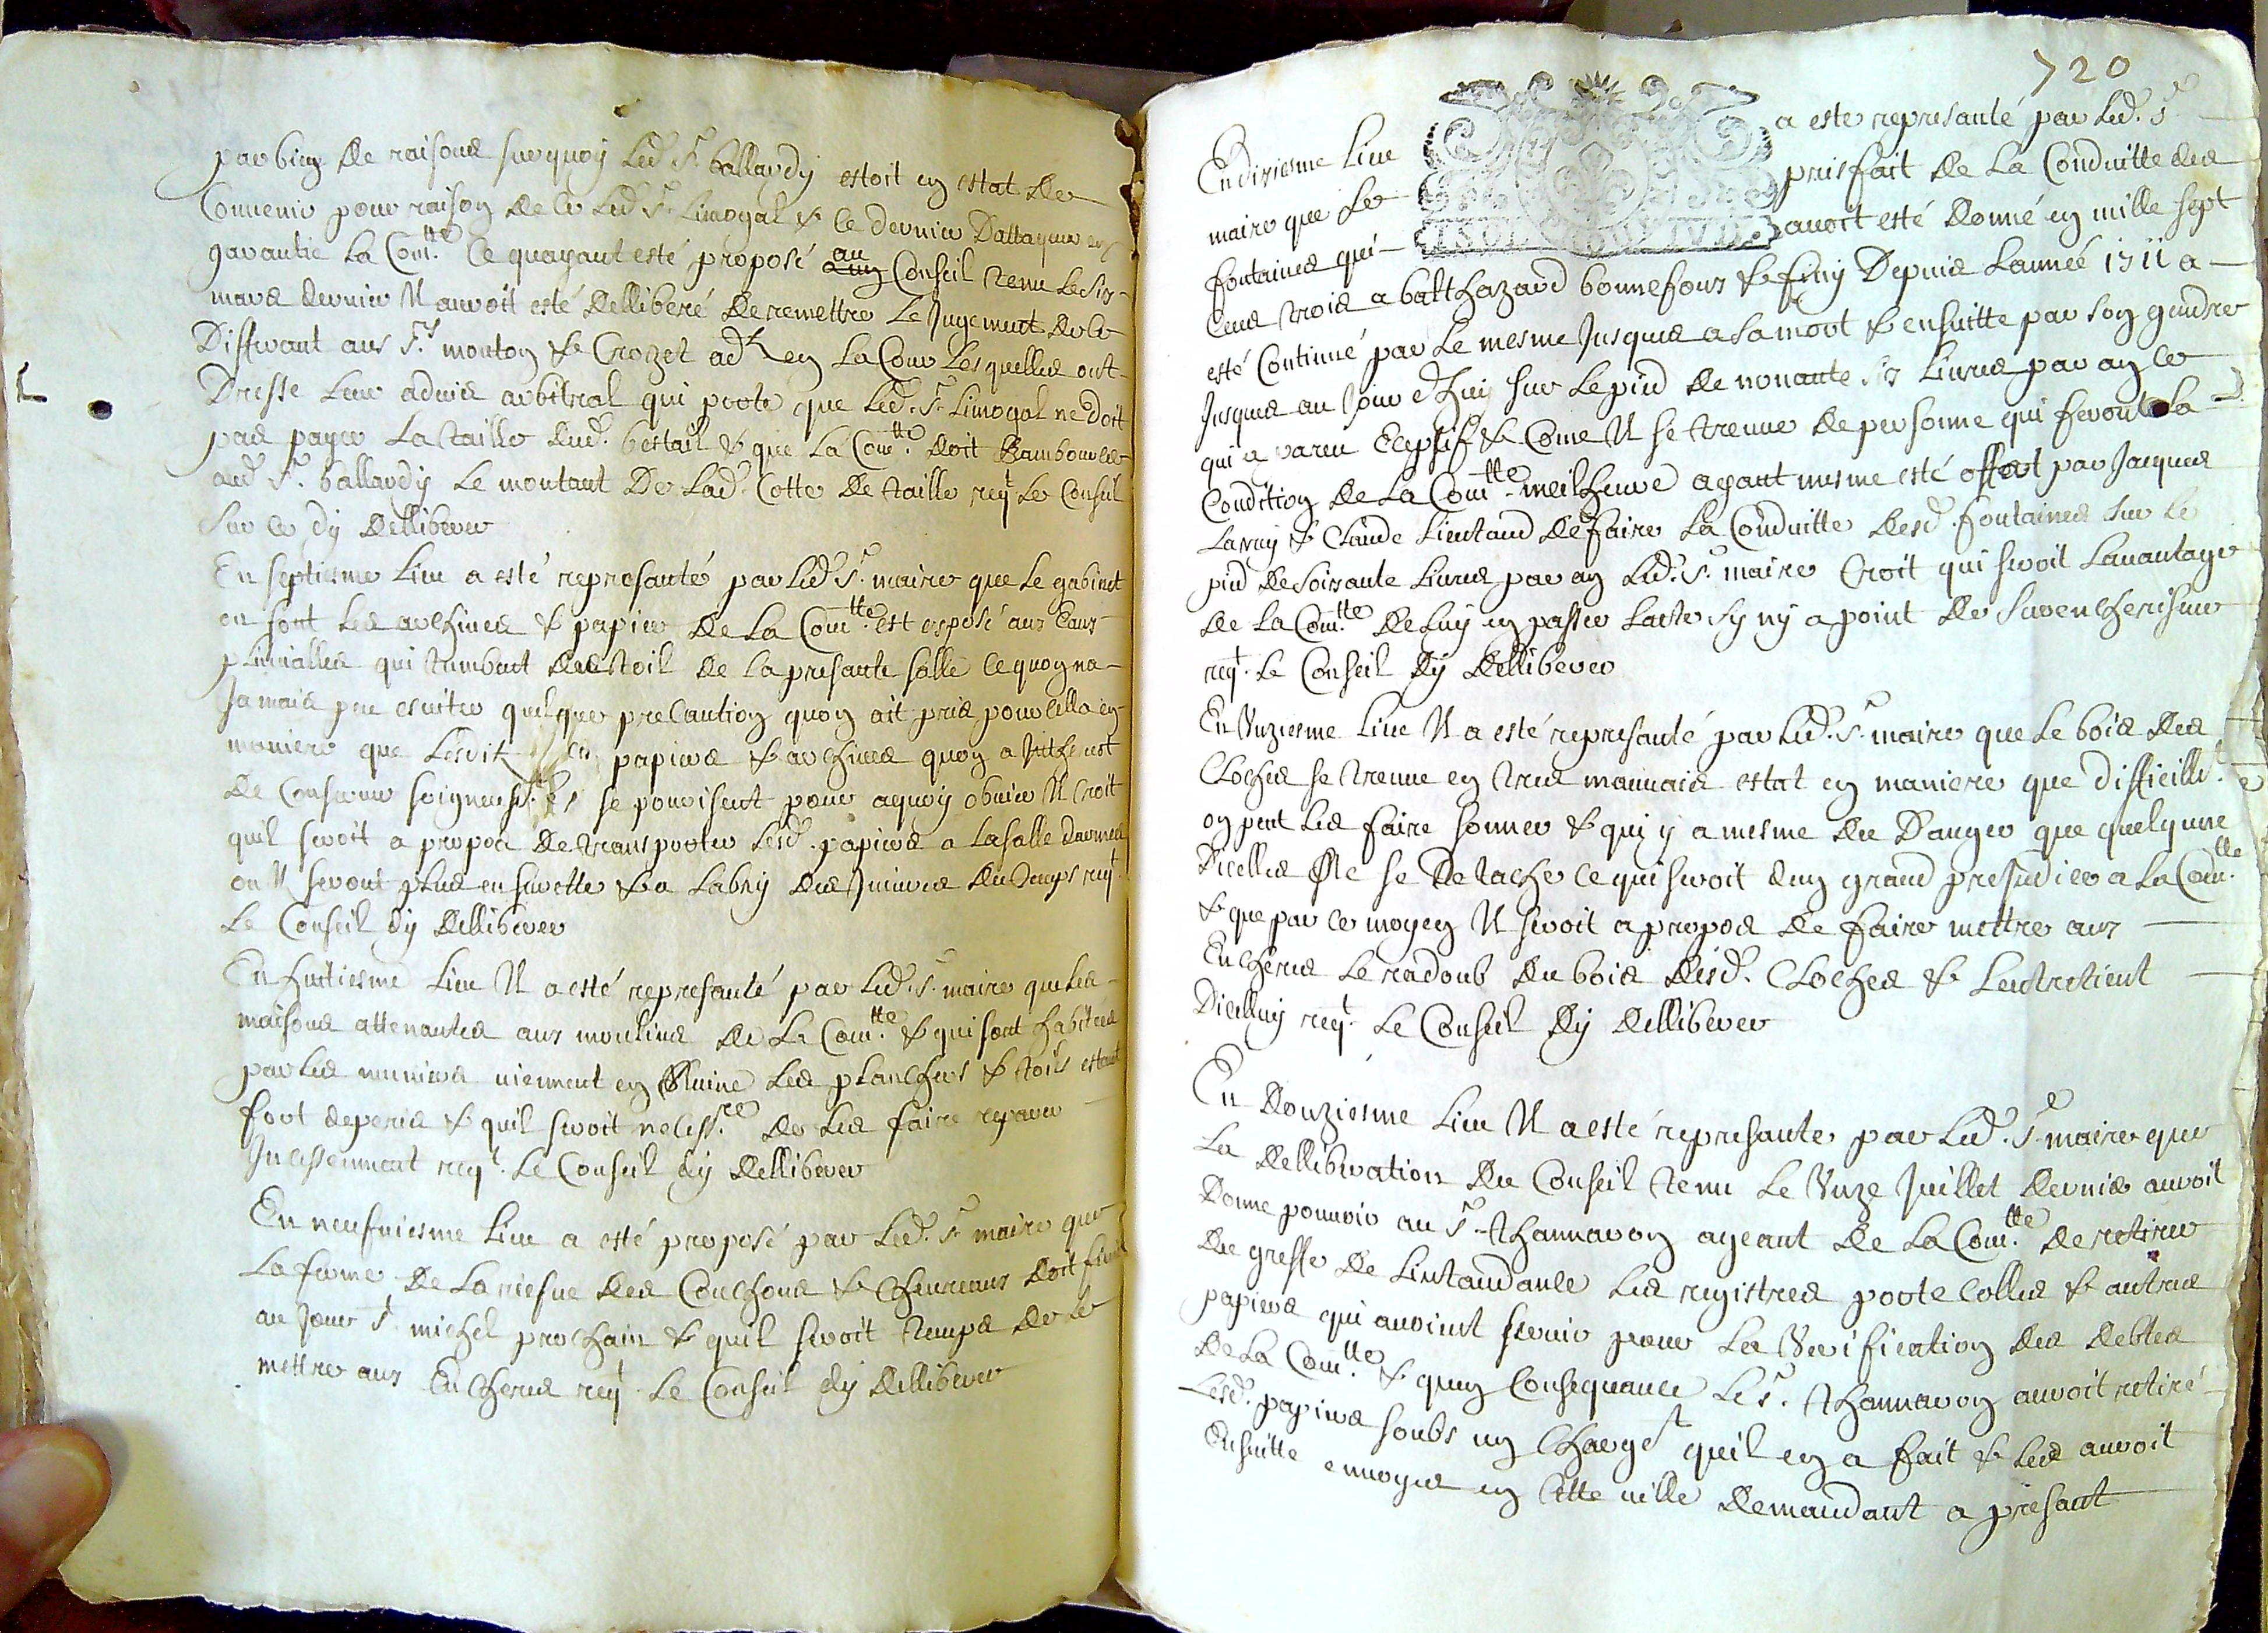 par bien de raisons surquoy led. Sr. ballardy estoit en estat de
Convenir pour raison de ce led. Sr. Limogal & ce dernier D'attaquer en
garantie la Com.tte Ce quayant esté proposé au Conseil tenu le six
mars dernier Il auroit esté dellibéré de remettre le Jugement de ce
Differant aux Srs. mouton & Crozet adts en la Cour lesquelles ont
Dresse leur advis arbitral qui porte que led. Sr. Limogal ne doit
pas payer la taille dud. bestail & que la Com.tte doit Rambourcer
aud. Sr. ballardy le montant de lad. Cotte de taille reqt. le Conseil
sur ce dy delliberer
En septiesme lieu a esté represanté par led. Sr. maire que le gabinet
ou sont les archives & papier de la Com.tte est exposé aux Eaux
pluvialles qui tumbent des toit de la presante salle ce quoy na
Jamais peu esviter quelque precaution quon ait pris pour cella en
maniere que lesdit papiers & archives quon a Intherest
de conserver soigneusemt. se pourisent pour aquoy obvier Il croit
quil seroit a propos de transporter lesd. papiers a la salle darmes
ou Il seront plus en surette & a labry des Injures du temps reqt.
le Conseil dy dellibérer
En huitiesme lieu Il a esté represanté par led. Sr. maire que les
maisons attenantes aux moulins de la Com.tte & qui sont habitées
par les muniers viennent en Ruine les planchers & toits estant
fort deperis & quil seroit necess.re de les faire reparer
Incessemment reqt. le Conseil dy dellibérer
En neufviesme lieu a esté proposé par led. Sr. maire que
la ferme de la riesve des Couchons & Chevreaux doit finir
au Jour St. michel prochain & quil seroit temps de le
mettre aux Encheres reqt. le Conseil dy dellibérer
720
En dixiesme lieu a este represanté par led. Sr.
maire que le prisfait de la Conduitte des
fontaines qui avoit esté donné en mille sept
cens trois a balthazard bonnefoux & finy depuis lannée 1711 a
esté Continué par le mesme Jusques a sa mort & ensuitte par son gendre
Jusques au Jour dhuy sur le pied de nonante six livres par an ce
qui a paru Excesif & Come Il se treuve de personne qui feront la
Condition de la Com.tte meilheure ayant mesme esté offert par Jacques
& Claude Lieutaud de faire la Conduitte desd. fontaines sur le
pied de soixante livres par an led. Sr. maire Croit qui seroit lavantage
de la Com.tte de luy en passer lacte sy ny a point de surencherisseur
reqt. le Conseil dy dellibérer
En Unziesme lieu Il a esté represanté par led. Sr. maire que le bois des
Cloches se treuve en tres mauvais estat en maniere que difficillemt.
on peut les faire sonner & qui y a mesme du danger que quelqune
dicelles ne se detache ce qui seroit dun grand prejudice a la Com.tte
& que par ce moyen Il seroit a propos de faire mettre aux
Encheres le radoub du bois desd. Cloches & Lentretient
dicelluy reqt. le Conseil dy dellibérer
En douziesme lieu Il a esté represante par led. Sr. maire que
la dellibération du Conseil tenu le Unze Juillet dernier auroit
Donne pouvoir au Sr. thannaron ageant de la Com.tte de retirer
du greffe de lintandance les registres porte colles & autres
papiers qui avoint servir pour la Verification des debtes
de la Com.tte & quen consequance le Sr. thannaron auroit retiré
lesd. papiers soubs un chargt. quil en a fait & les auroit
Ensuitte envoyes en cette ville demandant a présant